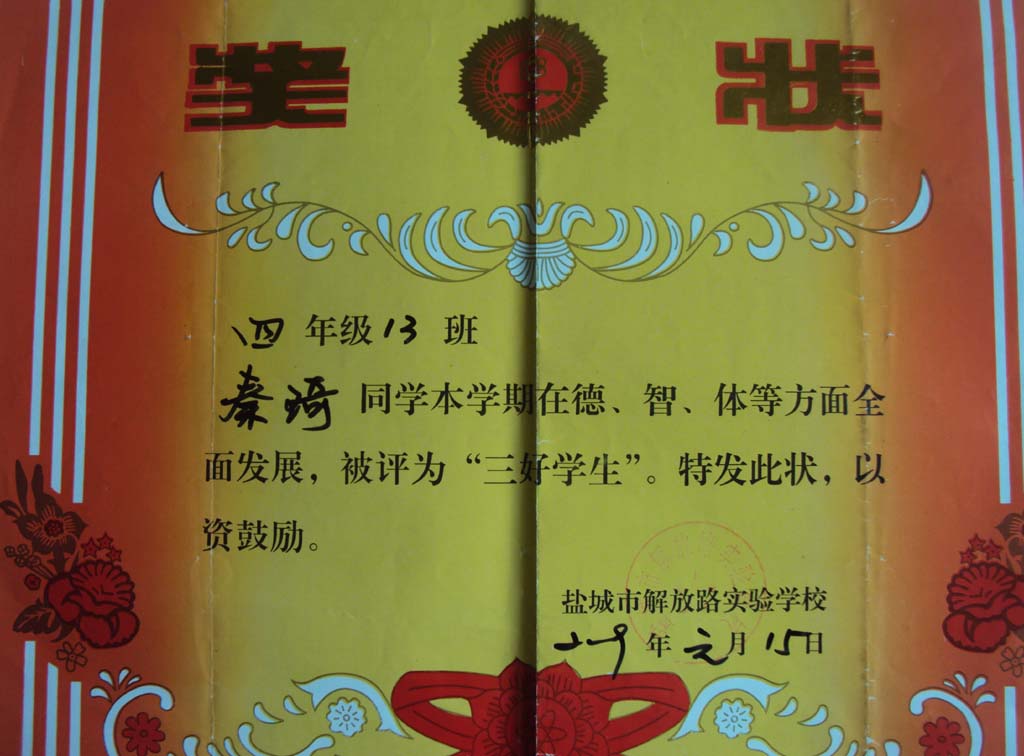 奖 状
四 年级 13 班
秦琦 同学本学期在德、智、体等方面全
面发展，被评为“三好学生”。特发此状，以
资鼓励。
盐城市解放路实验学校
年 元月 15日